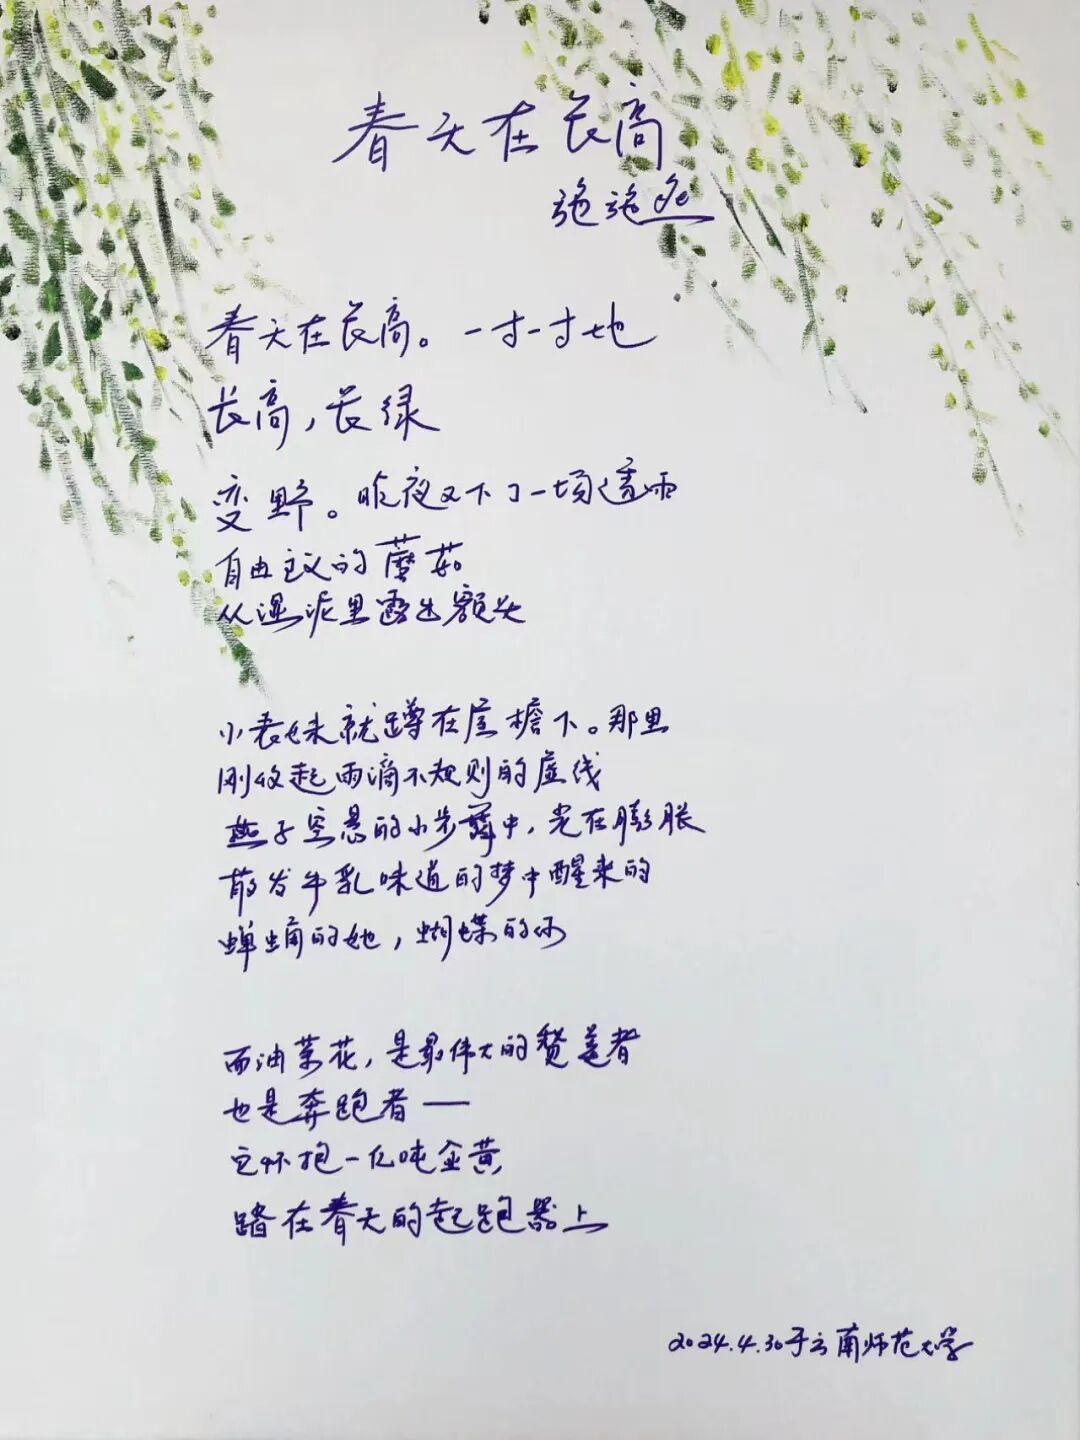 春天在长高
施施然
春天在长高。一寸一寸地
长高，长绿
变野。昨夜又下了一场透雨
自由主义的蘑菇
从湿泥里露出额头
小表妹就蹲在屋檐下。那里
刚收起雨滴不规则的虚线
燕子空悬的小步舞中，光在膨胀
散发牛乳味道的梦中醒来的
蝉蛹的她，蝴蝶的你
而油菜花，是最伟大的赞美者
也是奔跑者——
它怀抱一亿吨金黄
踏在春天的起跑器上
2024.4.30于云南师范大学